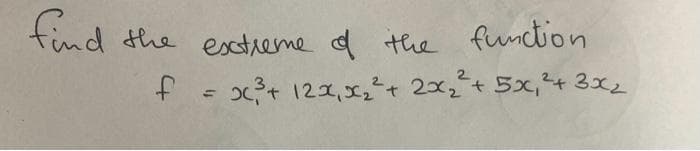 find the extreme of the function
f = x₁³ + 12x₁x₂² + 2x₂² + 5x₁² + 3x₂